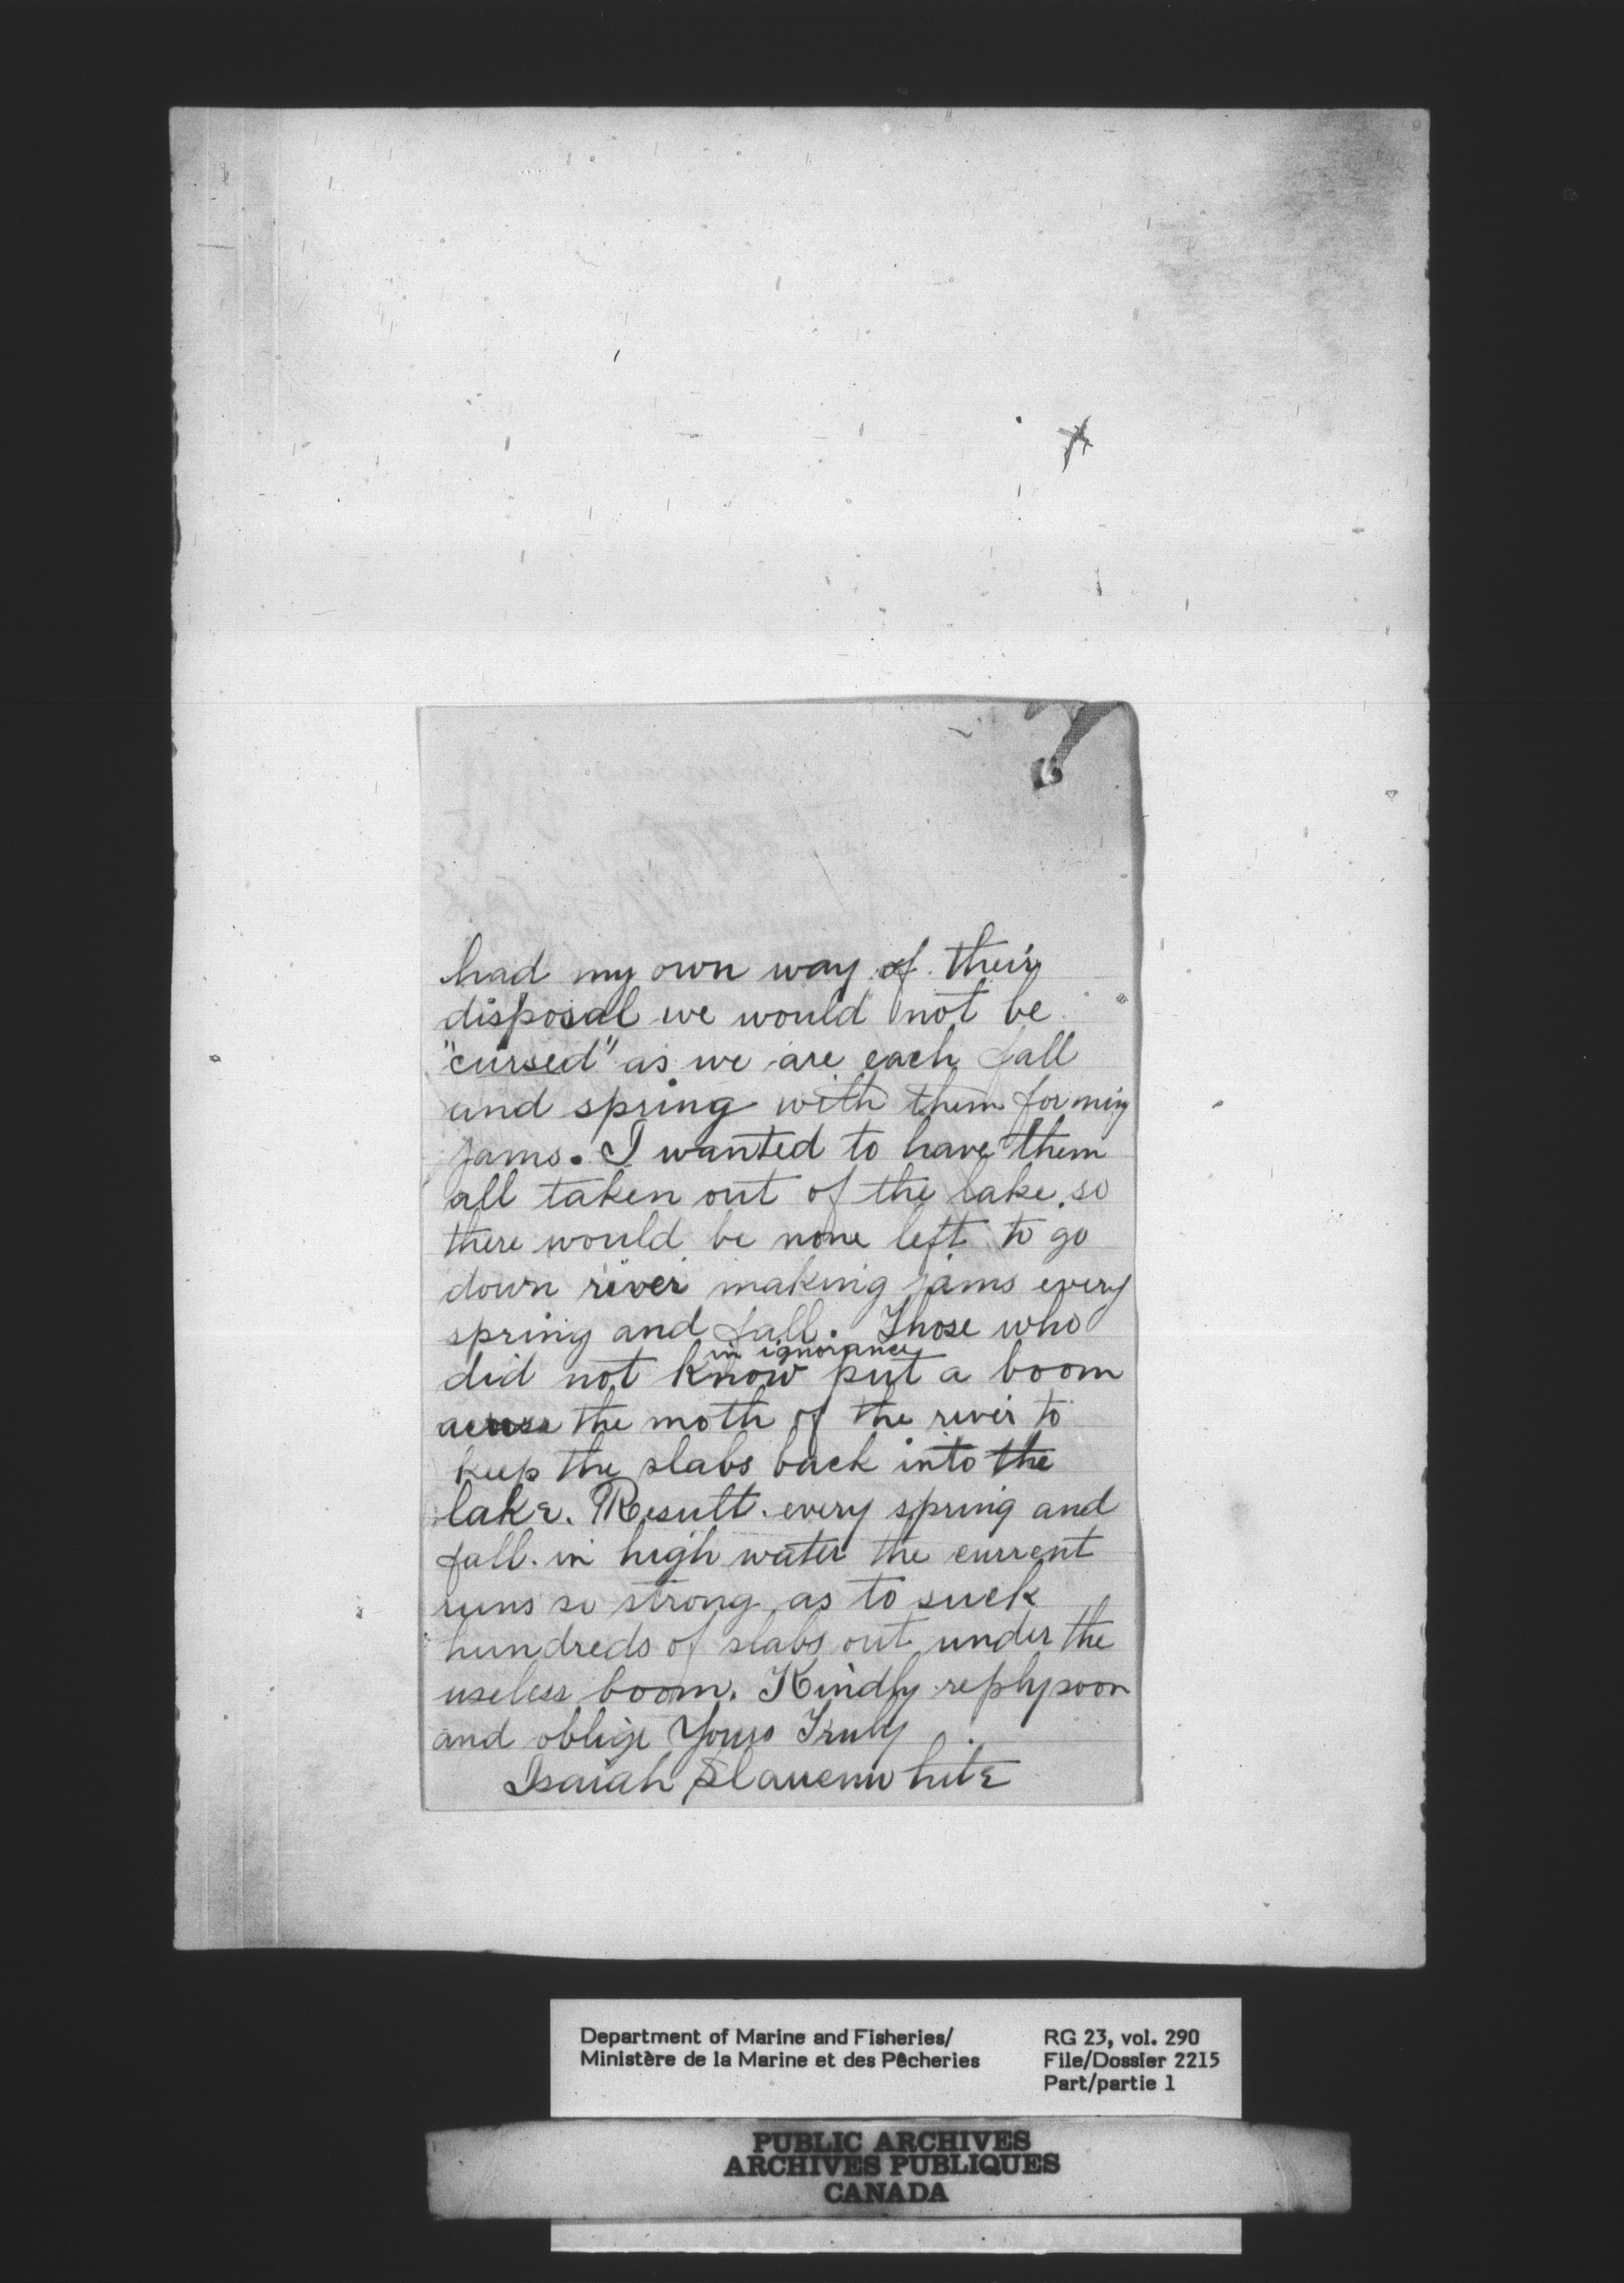 had my own way of their
disposal we would not be
"cursed" as we are each fall
and spring with them forming
jams. I wanted to have them
all taken out of the lake, so
there would be none left to go
down river making jams every
spring and fall. Those who
in ignorance
did not know put a boom
across the moth of the river to
keep the slabs back into the
lake. Result. every spring and
fall. in high water the current
runs so strong as to suck
hundreds of slabs out under the
useless boom. Kindly reply soon
and oblige Yours Truly
Isaiah Slauenwhite
Department of Marine and Fisheries/
Ministère de la Marine et des Pêcheries
RG 23, vol. 290
File/Dossier 2215
Part/partie 1
PUBLIC ARCHIVES
ARCHIVES PUBLIQUES
CANADA